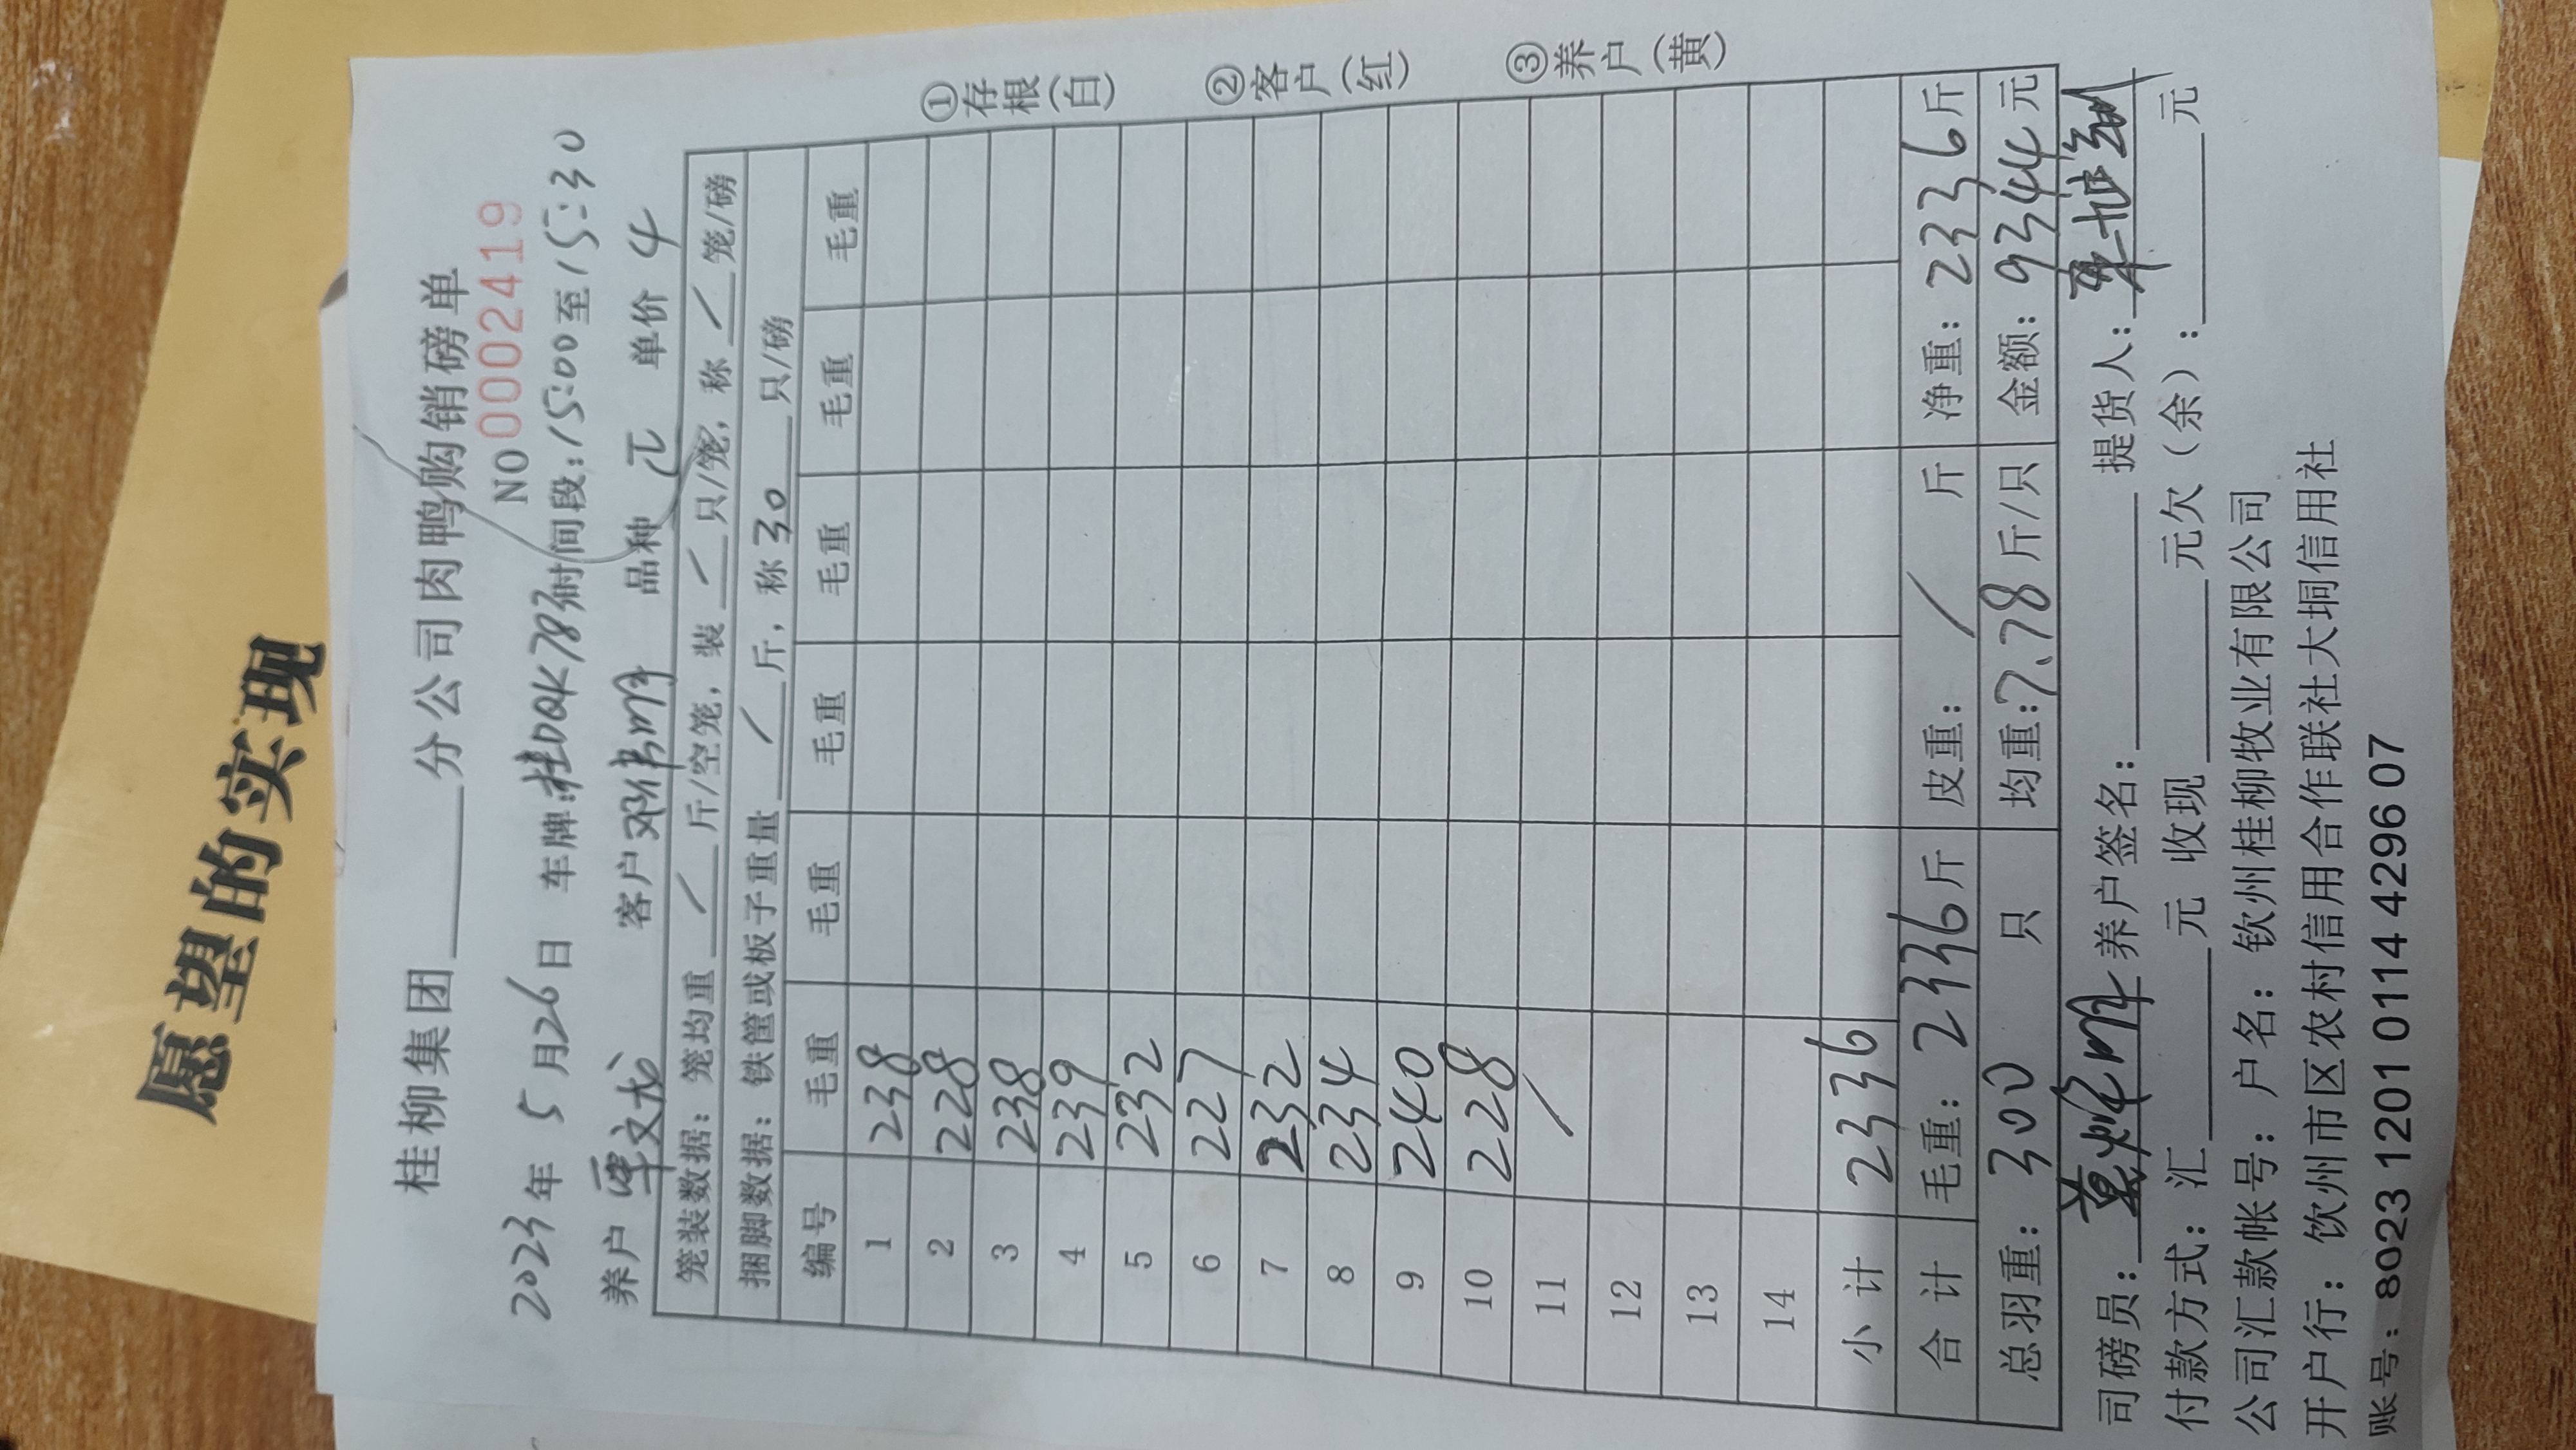 愿望的实现
桂柳集团 分公司肉鸭购销磅单
NO 0002419
2023年 5月26日 车牌:桂DQK783 时间段:15:00至15:30
养户 覃文龙 客户 品种 单价 4
笼装数据: 笼均重 / 斤/空笼, 装 / 只/笼, 称 / 笼/磅
捆脚数据: 铁筐或板子重量 / 斤, 称 30 只/磅
编号 毛重 毛重 毛重 毛重 毛重 毛重
1 238
2 228
3 238
4 239
5 232
6 227
7 232
8 234
9 240
10 228
11 /
12
13
14
小计 2336
合计 毛重: 2336斤 皮重: / 斤 净重: 2336斤
总羽重: 300 只 均重:7.78斤/只 金额: 9344元
司磅员: 养户签名: 提货人:
付款方式: 汇 元 收现 元欠(余): 元
公司汇款帐号: 户名: 钦州桂柳牧业有限公司
开户行: 饮州市区农村信用合作联社大垌信用社
账号: 8023 1201 0114 4296 07
①存根(白)
②客户(红)
③养户(黄)